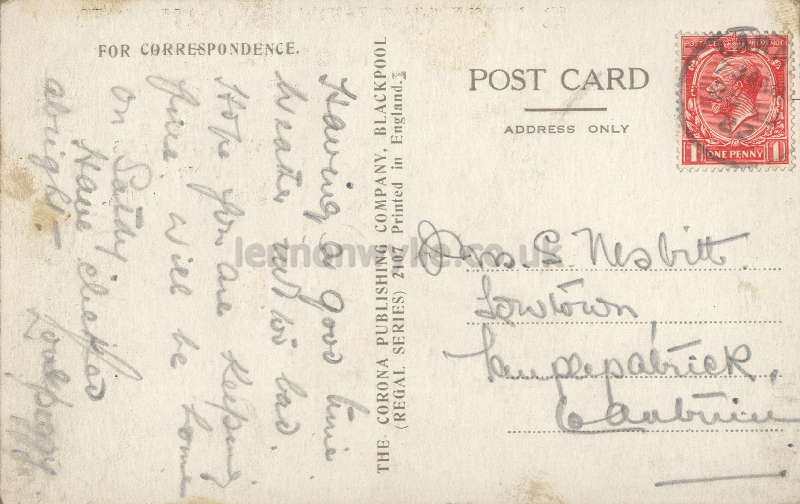 FOR CORRESPONDENCE.
Having a good time
Weather not too bad.
Hope you are keeping
fine, will be home
on Satdy
Have clicked
alright –
THE CORONA PUBLISHING COMPANY, BLACKPOOL
(REGAL SERIES) 2107 Printed in England.
POST CARD
ADDRESS ONLY
POSTAGE REVENUE
ONE PENNY
Nesbitt.
Lowtown,
lennonwylie.co.uk